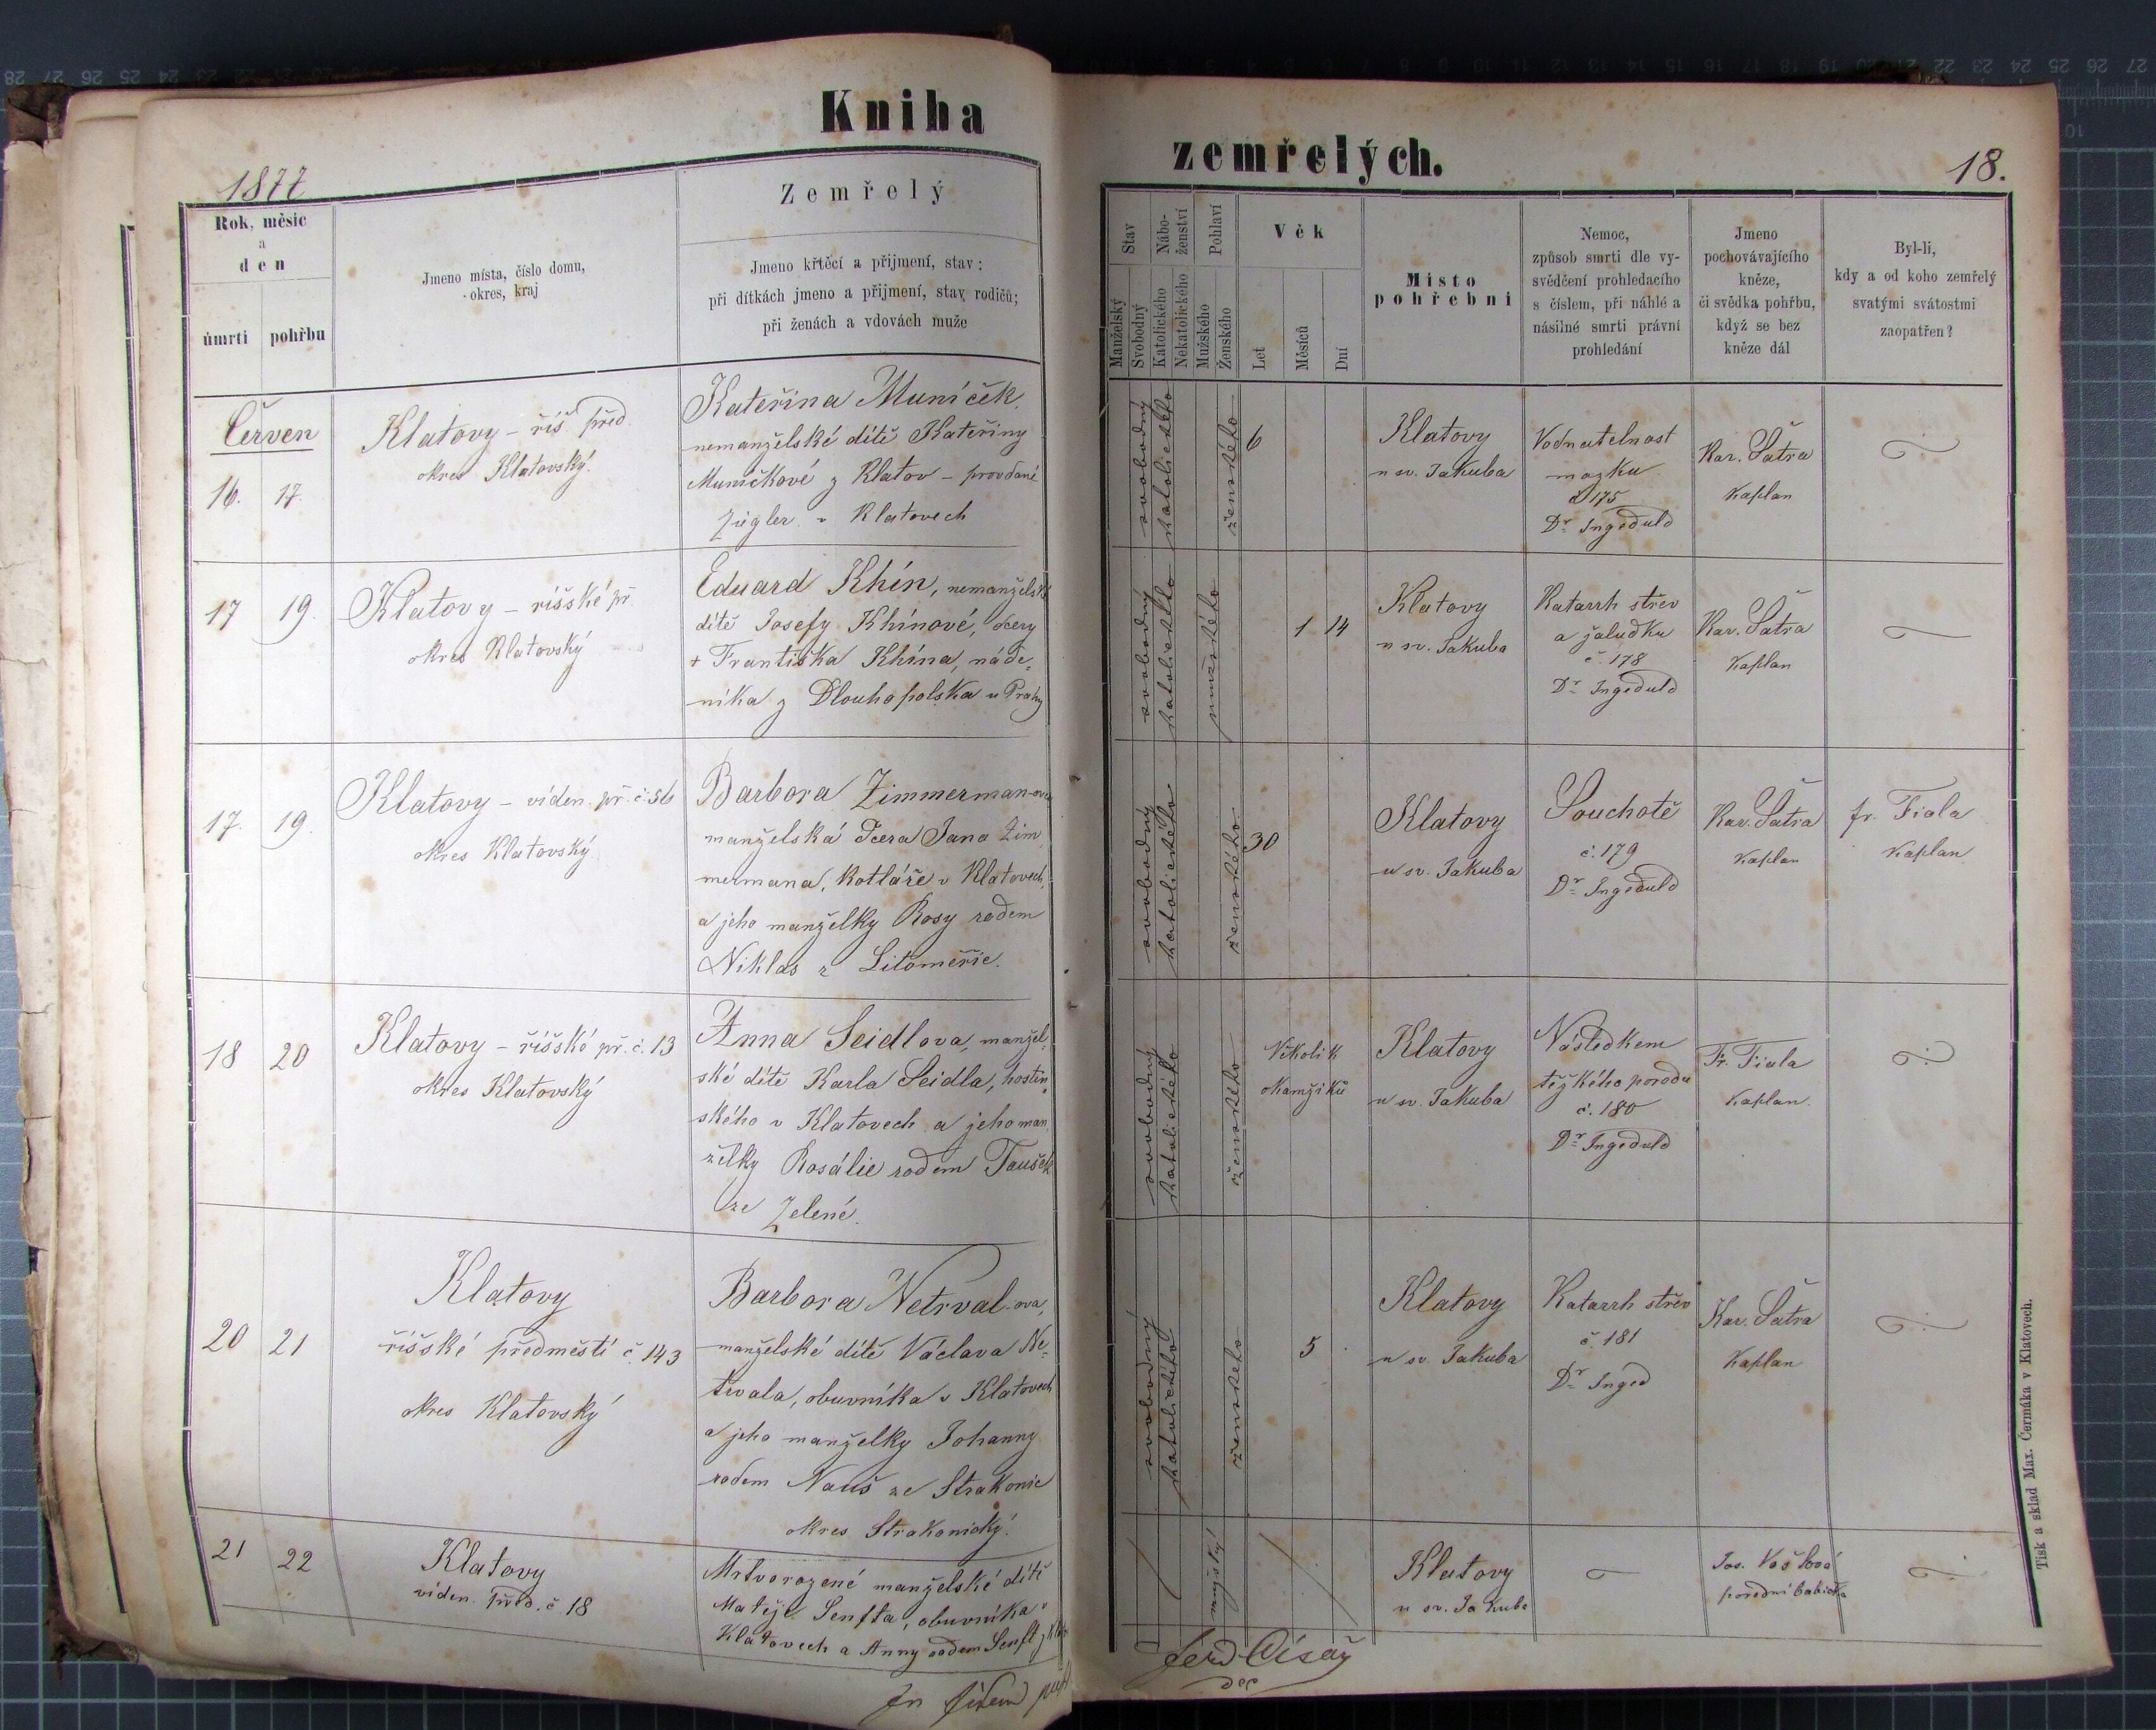 Kniha
zemřelých.
1877
18.
Rok, měsíc
a
den
úmrtí
pohřbu
Jmeno místa, číslo domu,
okres, kraj
Zemřelý
Jmeno křtěcí a přijmení, stav;
při dítkách jmeno a přijmení, stav rodičů;
při ženách a vdovách muže
Stav
Manželský
Svobodný
Nábo-
ženství
Katolického
Nekatolického
Pohlaví
Mužského
Ženského
Věk
Let
Měsíců
Dní
Místo
pohřební
Nemoc,
způsob smrti dle vy-
svědčení prohledacího
s číslem, při náhlé a
násilné smrti právní
prohledání
Jmeno
pochovávajícího
kněze,
či svědka pohřbu,
když se bez
kněze dál
Byl-li,
kdy a od koho zemřelý
svatými svátostmi
zaopatřen?
Červen
16. 17.
Klatovy – říš. před.
okres Klatovský.
Kateřina Muníček,
nemanželské dítě Kateřiny
Muničkové z Klatov – provdané
Zigler v Klatovech
svobodný
katolického
ženského
6
Klatovy
u sv. Jakuba
Vodnatelnost
mozku
č 175
Dr. Ingeduld
Kar. Šatra
Kaplan
17 19.
Klatovy – říšské př.
okres Klatovský
Eduard Khín, nemanželské
dítě Josefy Khínové, dcery
+ Františka Khína, náde-
níka z Dlouhopolska u Prahy
svobodný
katolického
mužského
1 14
Klatovy
u sv. Jakuba
Katarrh střev
a žaludku
č. 178
Dr. Ingeduld
Kar. Šatra
Kaplan
17. 19.
Klatovy – víden. př. č. 56
okres Klatovský
Barbora Zimmerman-ova
manželská dcera Jana Zim
mermana, Kotláře v Klatovech,
a jeho manželky Rosy rodem
Niklas z Litoměřic.
svobodný
katolického
ženského
30
Klatovy
u sv. Jakuba
Souchotě
č. 179
Dr. Ingeduld
Kar. Šatra
Kaplan
fr. Fiala
Kaplan
18 20
Klatovy – říšské př. č. 13
okres Klatovský
Anna Seidlova, manžel-
ské dítě Karla Seidla, hostin-
ského v Klatovech a jeho man
želky Rosálie rodem Taušek
ze Zelené.
svobodný
katolického
ženského
Několik
okamžiků
Klatovy
u sv. Jakuba
Následkem
těžkého porodu
č. 180
Dr. Ingeduld
Fr. Fiala
Kaplan.
20 21
Klatovy
říšské předměstí č. 143
okres Klatovský
Barbora Netrval-ova,
manželské dítě Václava Ne-
trvala, obuvníka v Klatovech
a jeho manželky Johanny
rodem Nauš ze Strakonic
okres Strakonický.
svobodný
katolického
ženského
5
Klatovy
u sv. Jakuba
Katarrh střev
č. 181
Dr. Inged
Kar. Šatra
Kaplan
21 22
Klatovy
víden. před. č 18
Mrtvorozené manželské dítě
Matěje Senfta, obuvníka v
Klatovech a Anny rodem Senft z
Klatovy
u sv. Jakuba
Jos. Vošková
porodní babička
Ferd Císař
Tisk a sklad Max. Čermáka v Klatovech.